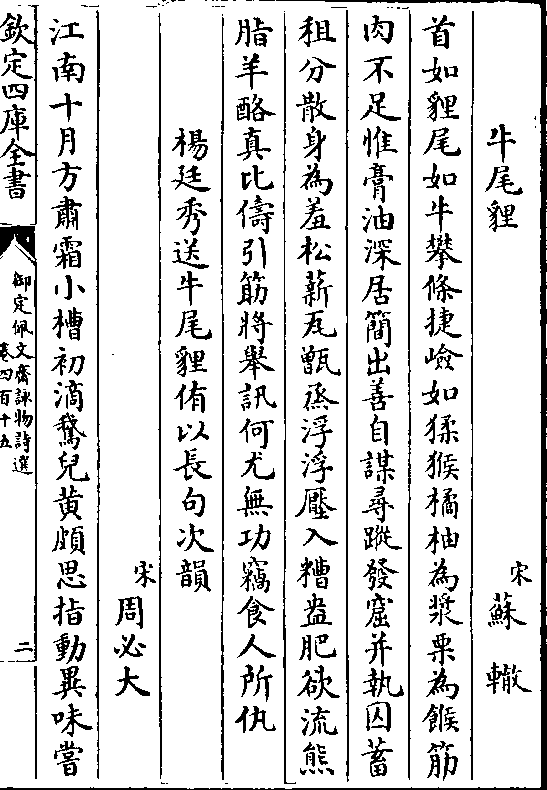 牛尾貍
宋 蘇 轍
首如貍尾如牛攀條捷嶮如猱猴橘柚為漿栗為餱筋
肉不足惟膏油深居簡出善自謀尋蹤發窟并執囚蓄
租分散身為羞松薪瓦甑烝浮浮壓入糟盎肥欲流熊
脂羊酪真比儔引筯將舉訊何尤無功竊食人所仇
楊廷秀送牛尾貍侑以長句次韻
宋 周必大
江南十月方肅霜小槽初滴鵞兒黄頗思指動異味嘗
欽定四庫全書
御定佩文齋詠物詩選
卷四百十五
二